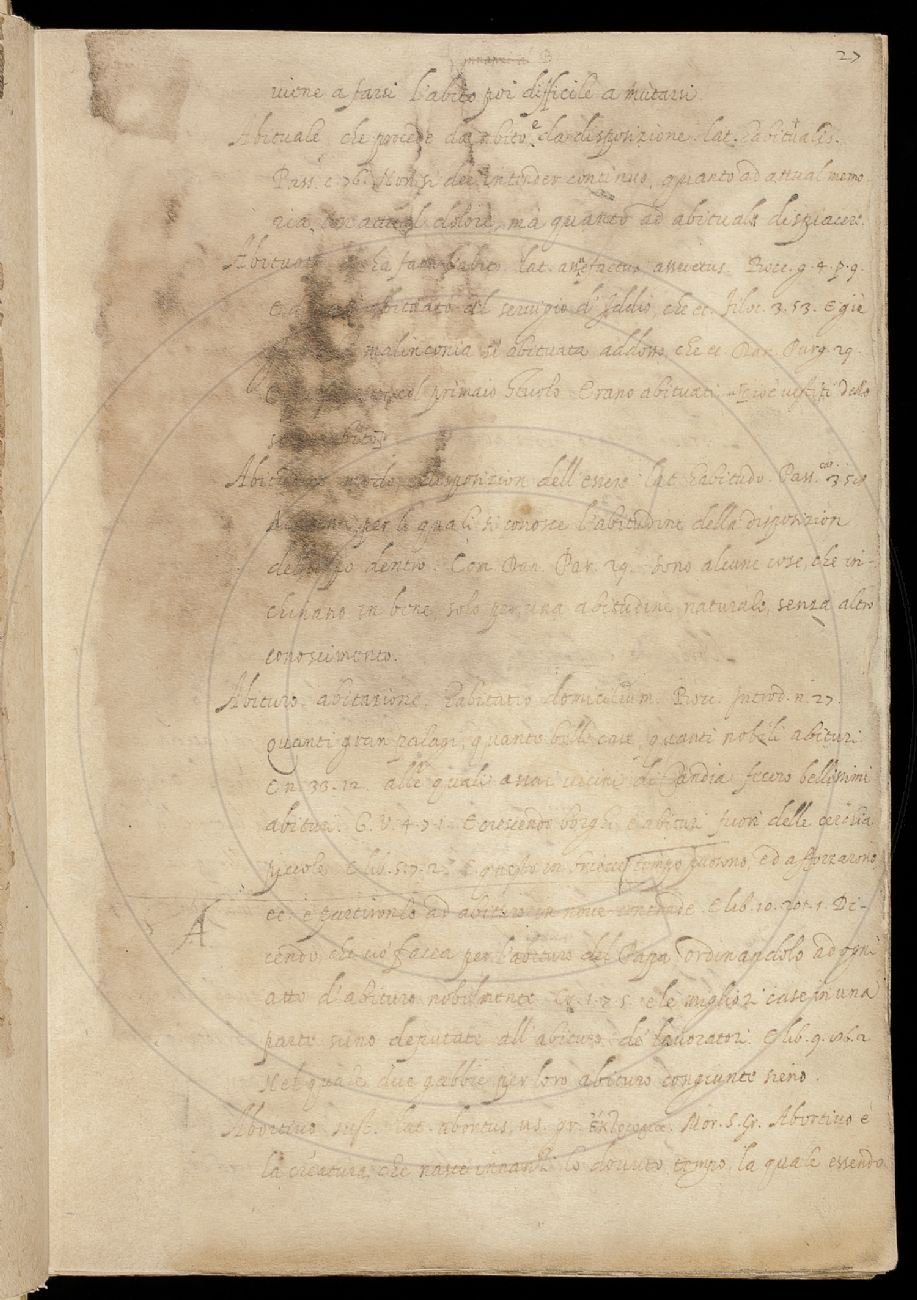 27
viene a farsi l'abito poi difficile a mutarsi
Abituale che procede da abito, e da disposizione. lat. habitualis.
Pass. c. 76. Non si dee intender continuo, quanto ad attual memo
ria, dolore, mà quanto ad abituale dispiacere.
Abituato ha fatto l'abito. lat. assuefactus assuetus. Bocc. g. 4. p. 9.
abituato al servigio d'Iddio, che ec. Filoc. 3. 53. E già
malinconia sì abituata addosso, che ec. Dan. Purg. 29.
col primaio stuolo Erano abituati cioè vestiti dello
abito
modo, disposizion dell'essere lat. habitudo. Pass. car. 358
per li quali si conosce l'abitudine della disposizion
dentro. Com. Dan. Par. 29. Sono alcune cose, che in-
chinano in bene, solo per una abitudine naturale, senza altro
conoscimento.
Abituro. abitazione. habitatio domicilium. Bocc. Introd. n. 27.
quanti gran palagi, quante belle case, quanti nobili abituri
E n. 33. 12. alle quali assai vicini di Candia fecero bellissimi
abituri. G. V. 4. 7. 1. E crescendo borghi e abituri fuori delle cerchia
piccole. E lib. 5. 7. 2. E questo in brieve tempo fuorono, ed afforzarono
ec. e partironlo ad abituro in nove contrade E lib. 10. 201. 1. Di-
cendo, che ciò facea per l'abituro del Papa ordinandolo ad ogni
atto d'abituro nobilmente Cr. 1. 7. 5. e le miglior case in una
A
parte sieno deputate all'abituro de' lavoratori. E lib. 9. 86. 2.
Nel quale due gabbie per loro abituro congiunte sieno.
Abortivo sust. lat. abortus, us. gr. Mor. S. Gr. Abortivo è
la creatura, che nasce innanzi lo dovuto tempo, la quale essendo